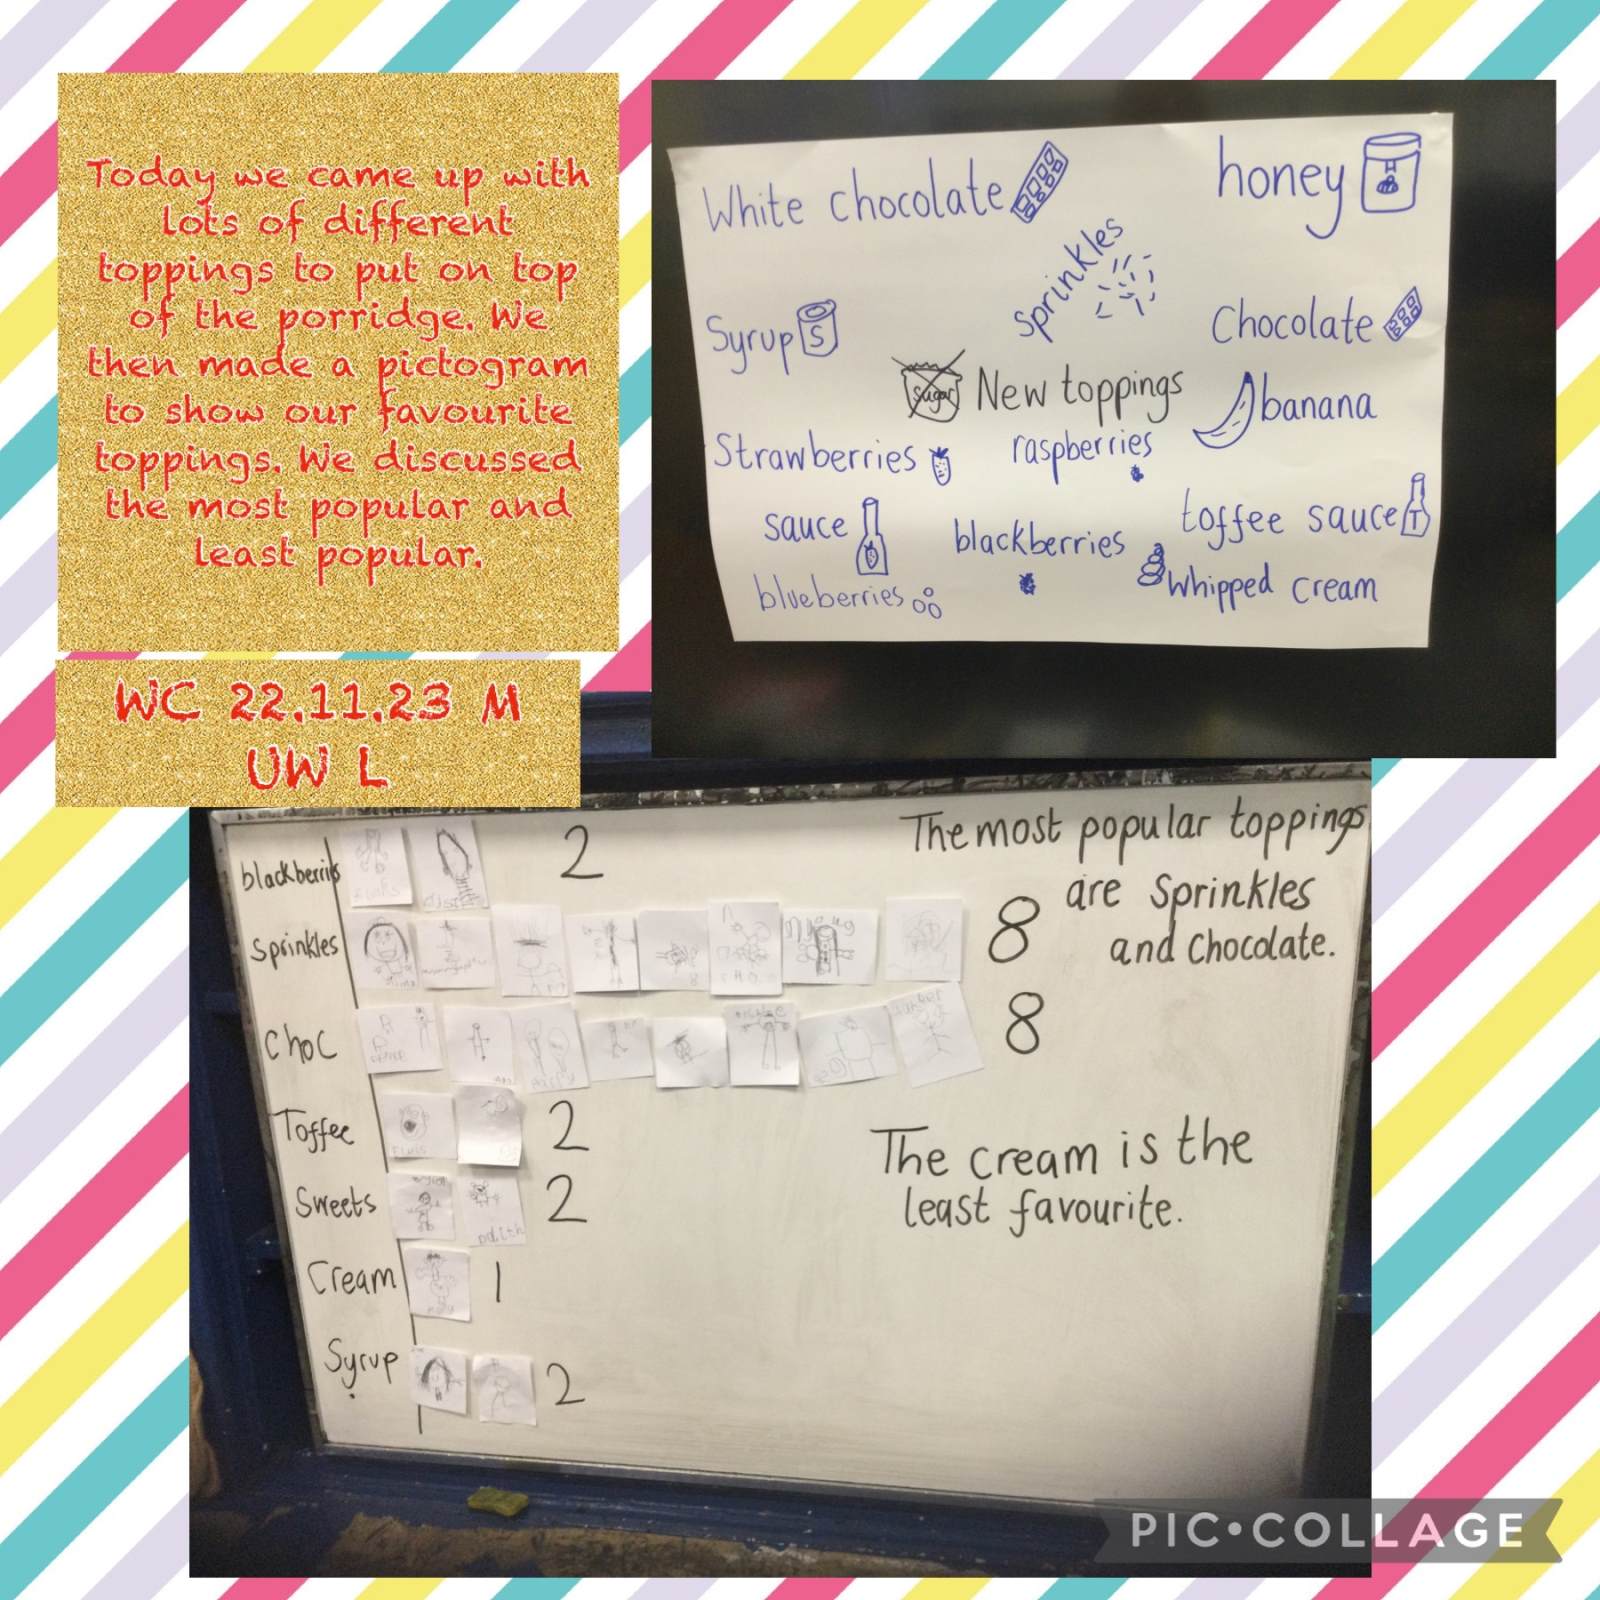 Today we came up with
lots of different
toppings to put on top
of the porridge. We
then made a pictogram
to show our favourite
toppings. We discussed
the most popular and
least popular.
WC 22.11.23 M
UW L
White chocolate
honey
sprinkles
Syrup S
Chocolate
Sugar New toppings
banana
Strawberries
raspberries
sauce
blackberries
toffee sauce T
blueberries
whipped cream
blackberries 2
Sprinkles 8
Choc 8
Toffee 2
Sweets 2
Cream 1
Syrup 2
The most popular toppings
are Sprinkles
and Chocolate.
The cream is the
least favourite.
PIC•COLLAGE